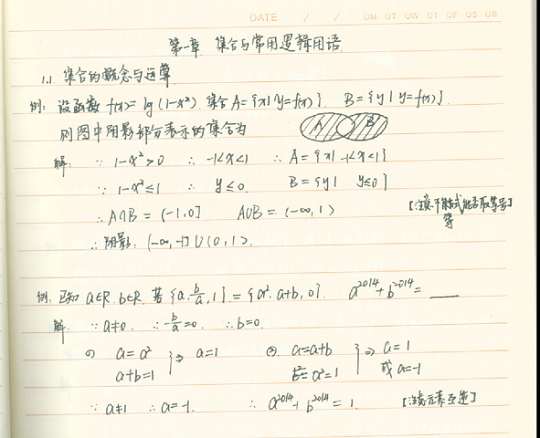 DATE / /
第一章 集合与常用逻辑用语
1.1 集合的概念与运算
例: 设函数 f(x)= lg(1-x²) 集合A={x|y=f(x)}. B={y|y=f(x)}.
则图中阴影部分表示的集合为 A B
解: ∵ 1-x²>0 ∴ -1<x<1 ∴ A={x|-1<x<1}
∵ 1-x²≤1 ∴ y≤0. B={y| y≤0}
∴ A∩B = (-1,0] A∪B = (-∞,1) [注意:不等式能否取等号]
∴ 阴影: (-∞,-1]∪(0,1).
例: 已知 a∈R. b∈R. 若 {a, b/a, 1} = {a², a+b, 0}. a²⁰¹⁴+b²⁰¹⁴= ___
解: ∵ a≠0. ∴ b/a=0. ∴ b=0.
① a=a² a+b=1 } ⇒ a=1 ② a=a+b a²=1 } ⇒ a=1 或 a=-1
∵ a≠1 ∴ a=-1. ∴ a²⁰¹⁴+b²⁰¹⁴=1. [注意元素互异]